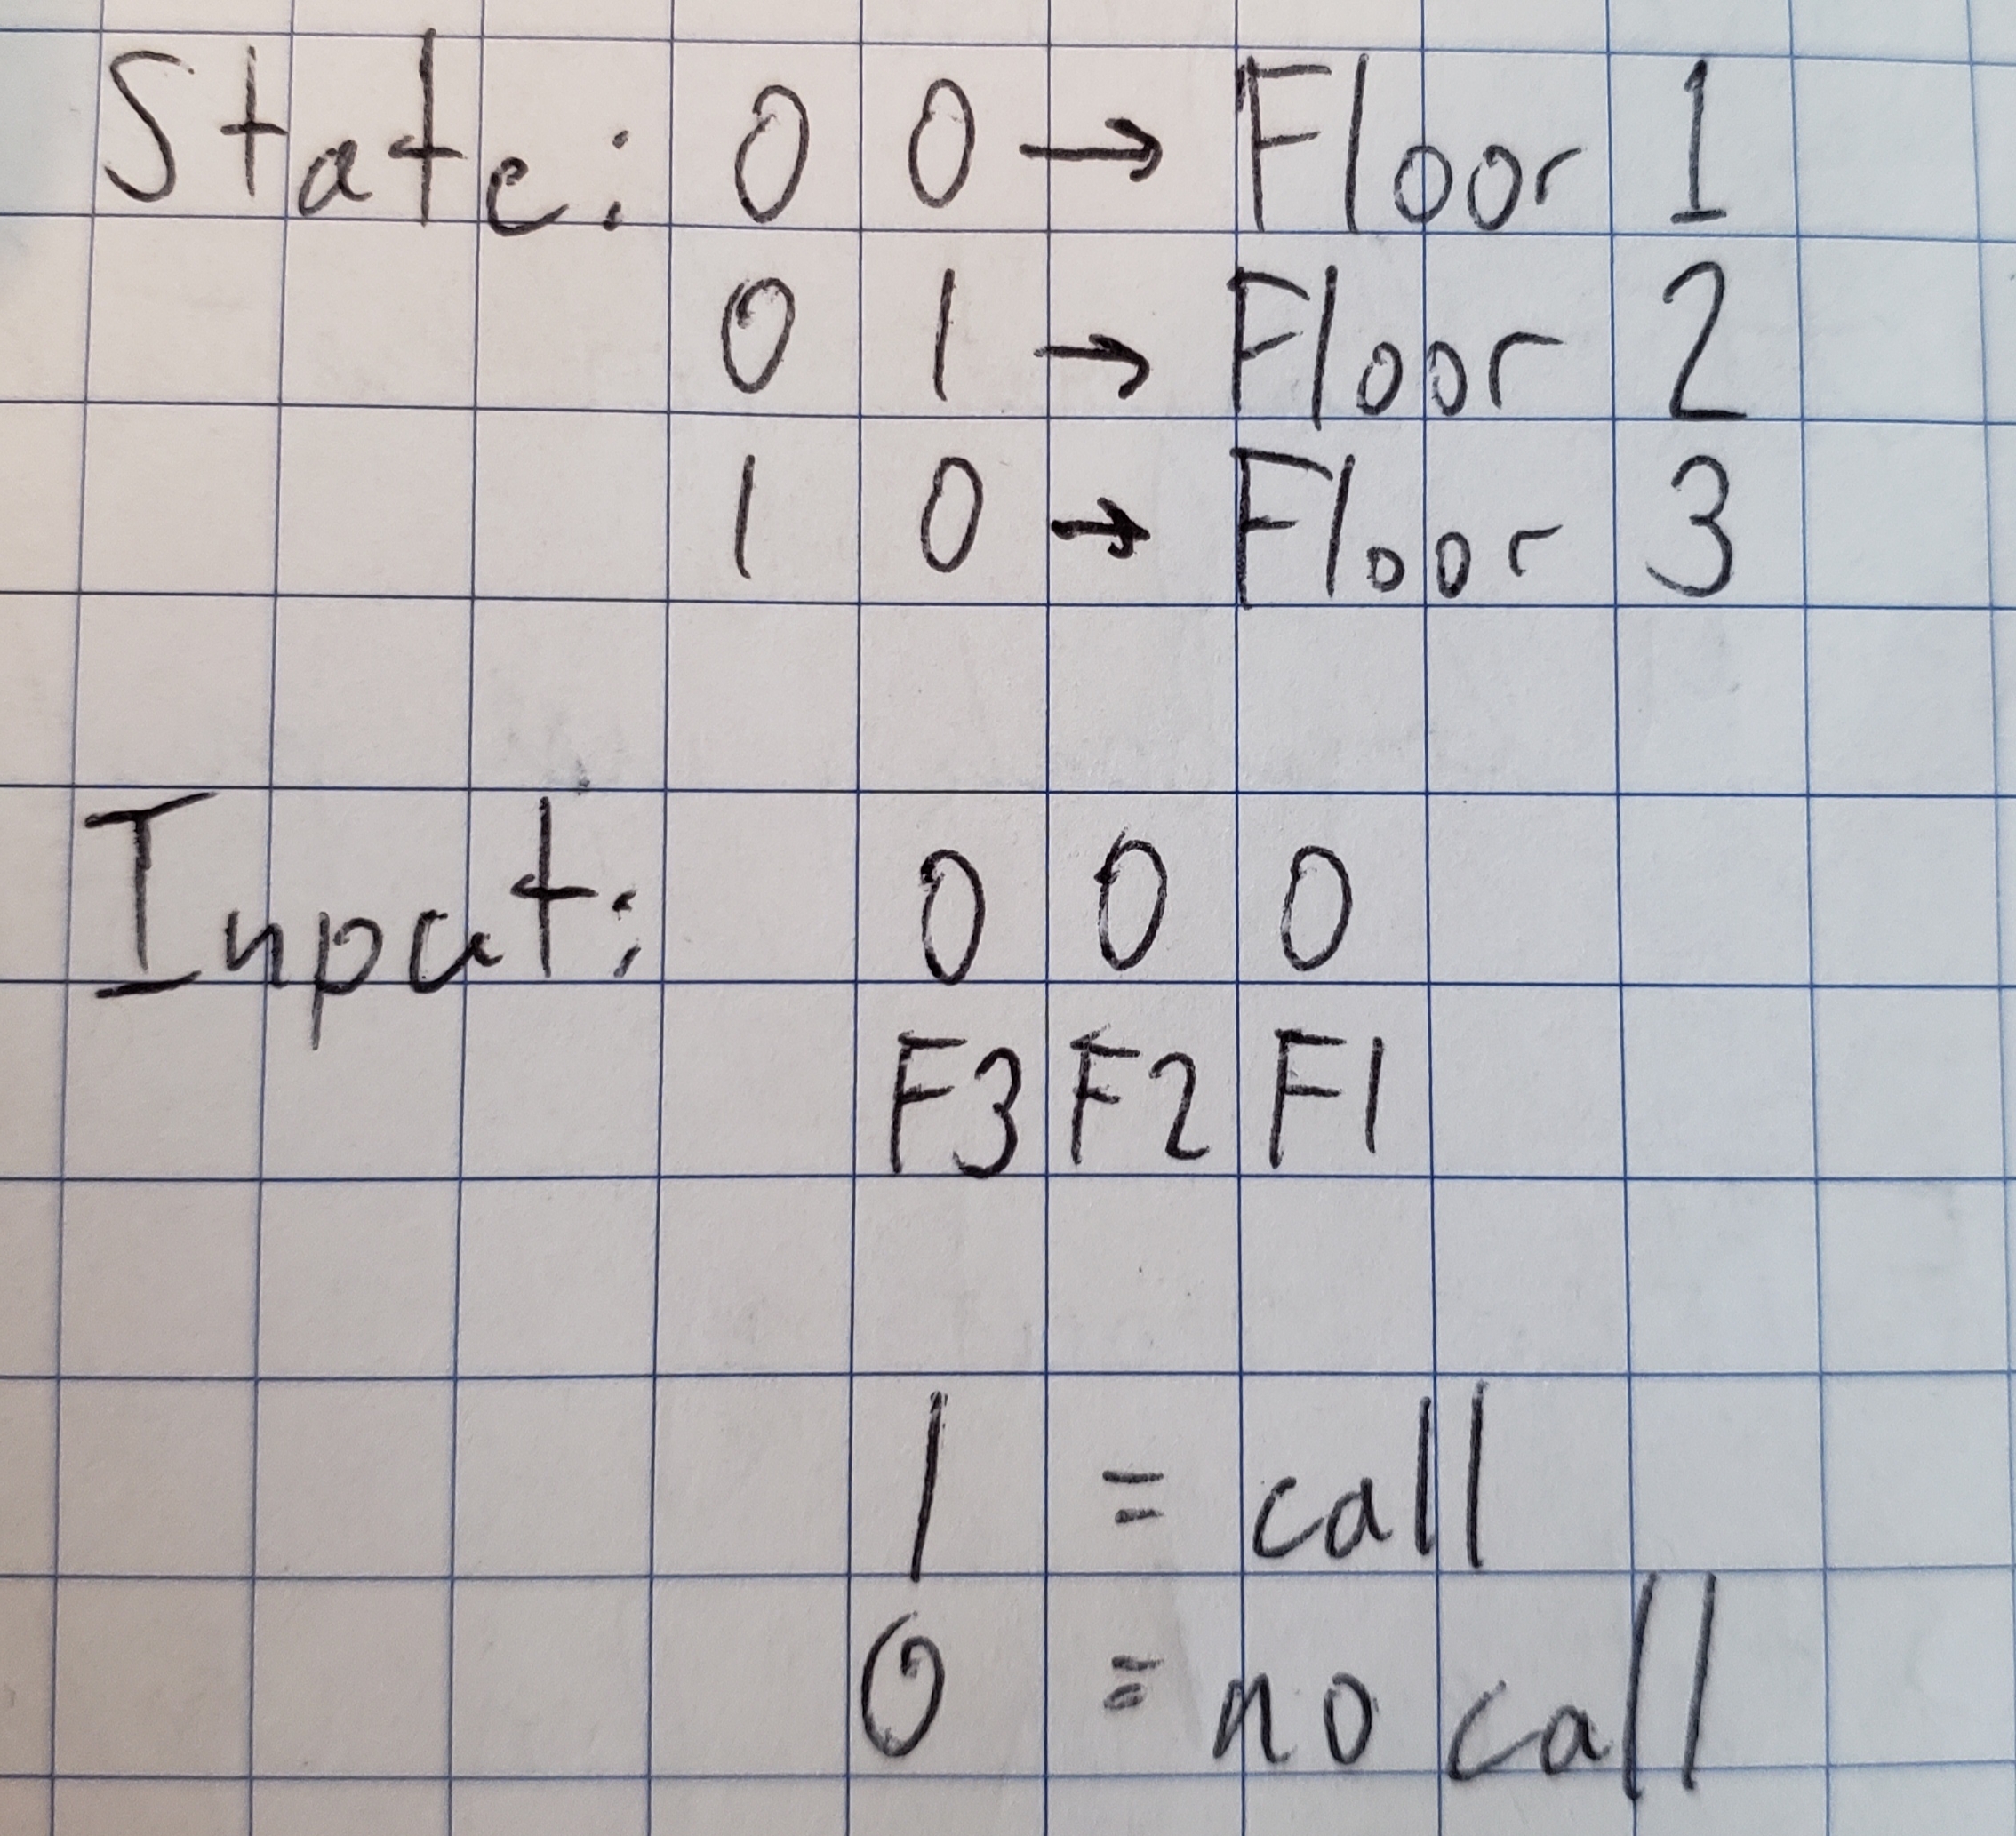 State: 0 0 → Floor 1
0 1 → Floor 2
1 0 → Floor 3
Input: 0 0 0
F3 F2 F1
1 = call
0 = no call